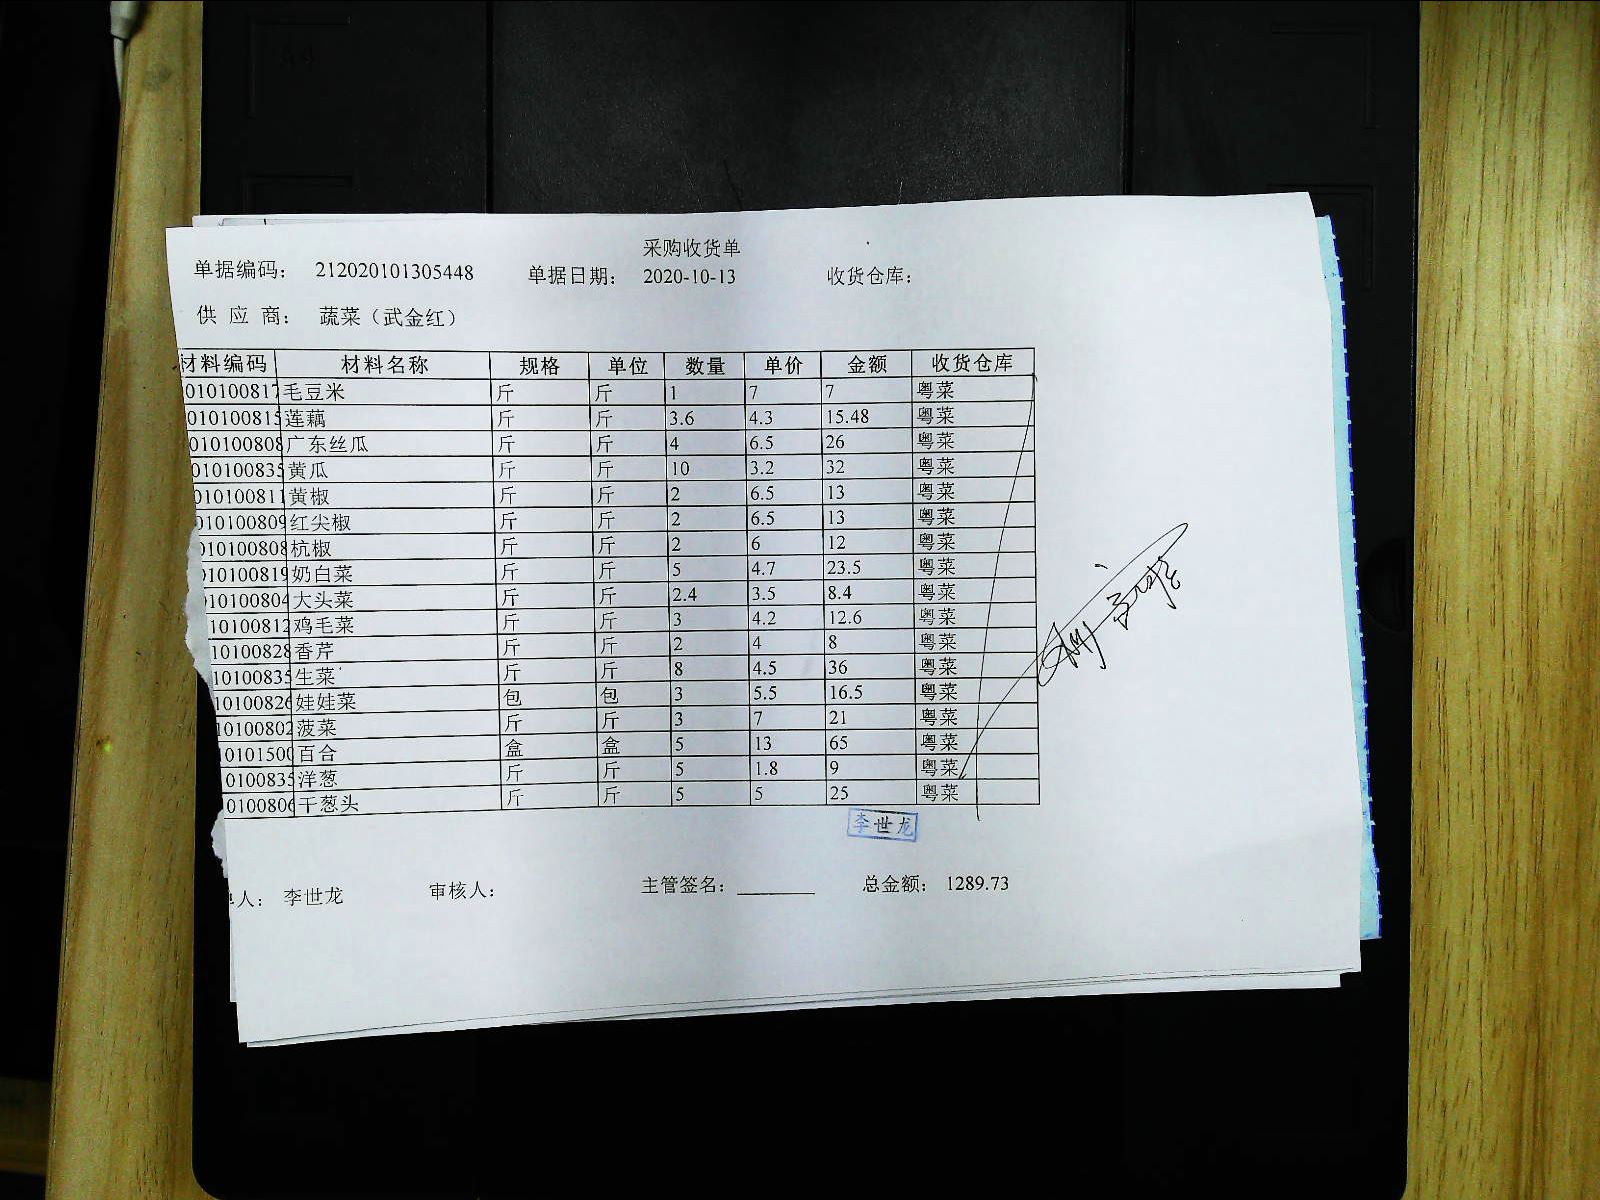 采购收货单
单据编码： 212020101305448 单据日期： 2020-10-13 收货仓库：
供 应 商： 蔬菜（武金红）
材料编码 材料名称 规格 单位 数量 单价 金额 收货仓库
010100817 毛豆米 斤 斤 1 7 7 粤菜
010100815 莲藕 斤 斤 3.6 4.3 15.48 粤菜
010100808 广东丝瓜 斤 斤 4 6.5 26 粤菜
010100835 黄瓜 斤 斤 10 3.2 32 粤菜
010100811 黄椒 斤 斤 2 6.5 13 粤菜
010100809 红尖椒 斤 斤 2 6.5 13 粤菜
010100808 杭椒 斤 斤 2 6 12 粤菜
010100819 奶白菜 斤 斤 5 4.7 23.5 粤菜
10100804 大头菜 斤 斤 2.4 3.5 8.4 粤菜
10100812 鸡毛菜 斤 斤 3 4.2 12.6 粤菜
10100828 香芹 斤 斤 2 4 8 粤菜
10100835 生菜 斤 斤 8 4.5 36 粤菜
10100826 娃娃菜 包 包 3 5.5 16.5 粤菜
10100802 菠菜 斤 斤 3 7 21 粤菜
0101500 百合 盒 盒 5 13 65 粤菜
0100835 洋葱 斤 斤 5 1.8 9 粤菜
0100806 干葱头 斤 斤 5 5 25 粤菜
李世龙
人： 李世龙 审核人： 主管签名： 总金额： 1289.73